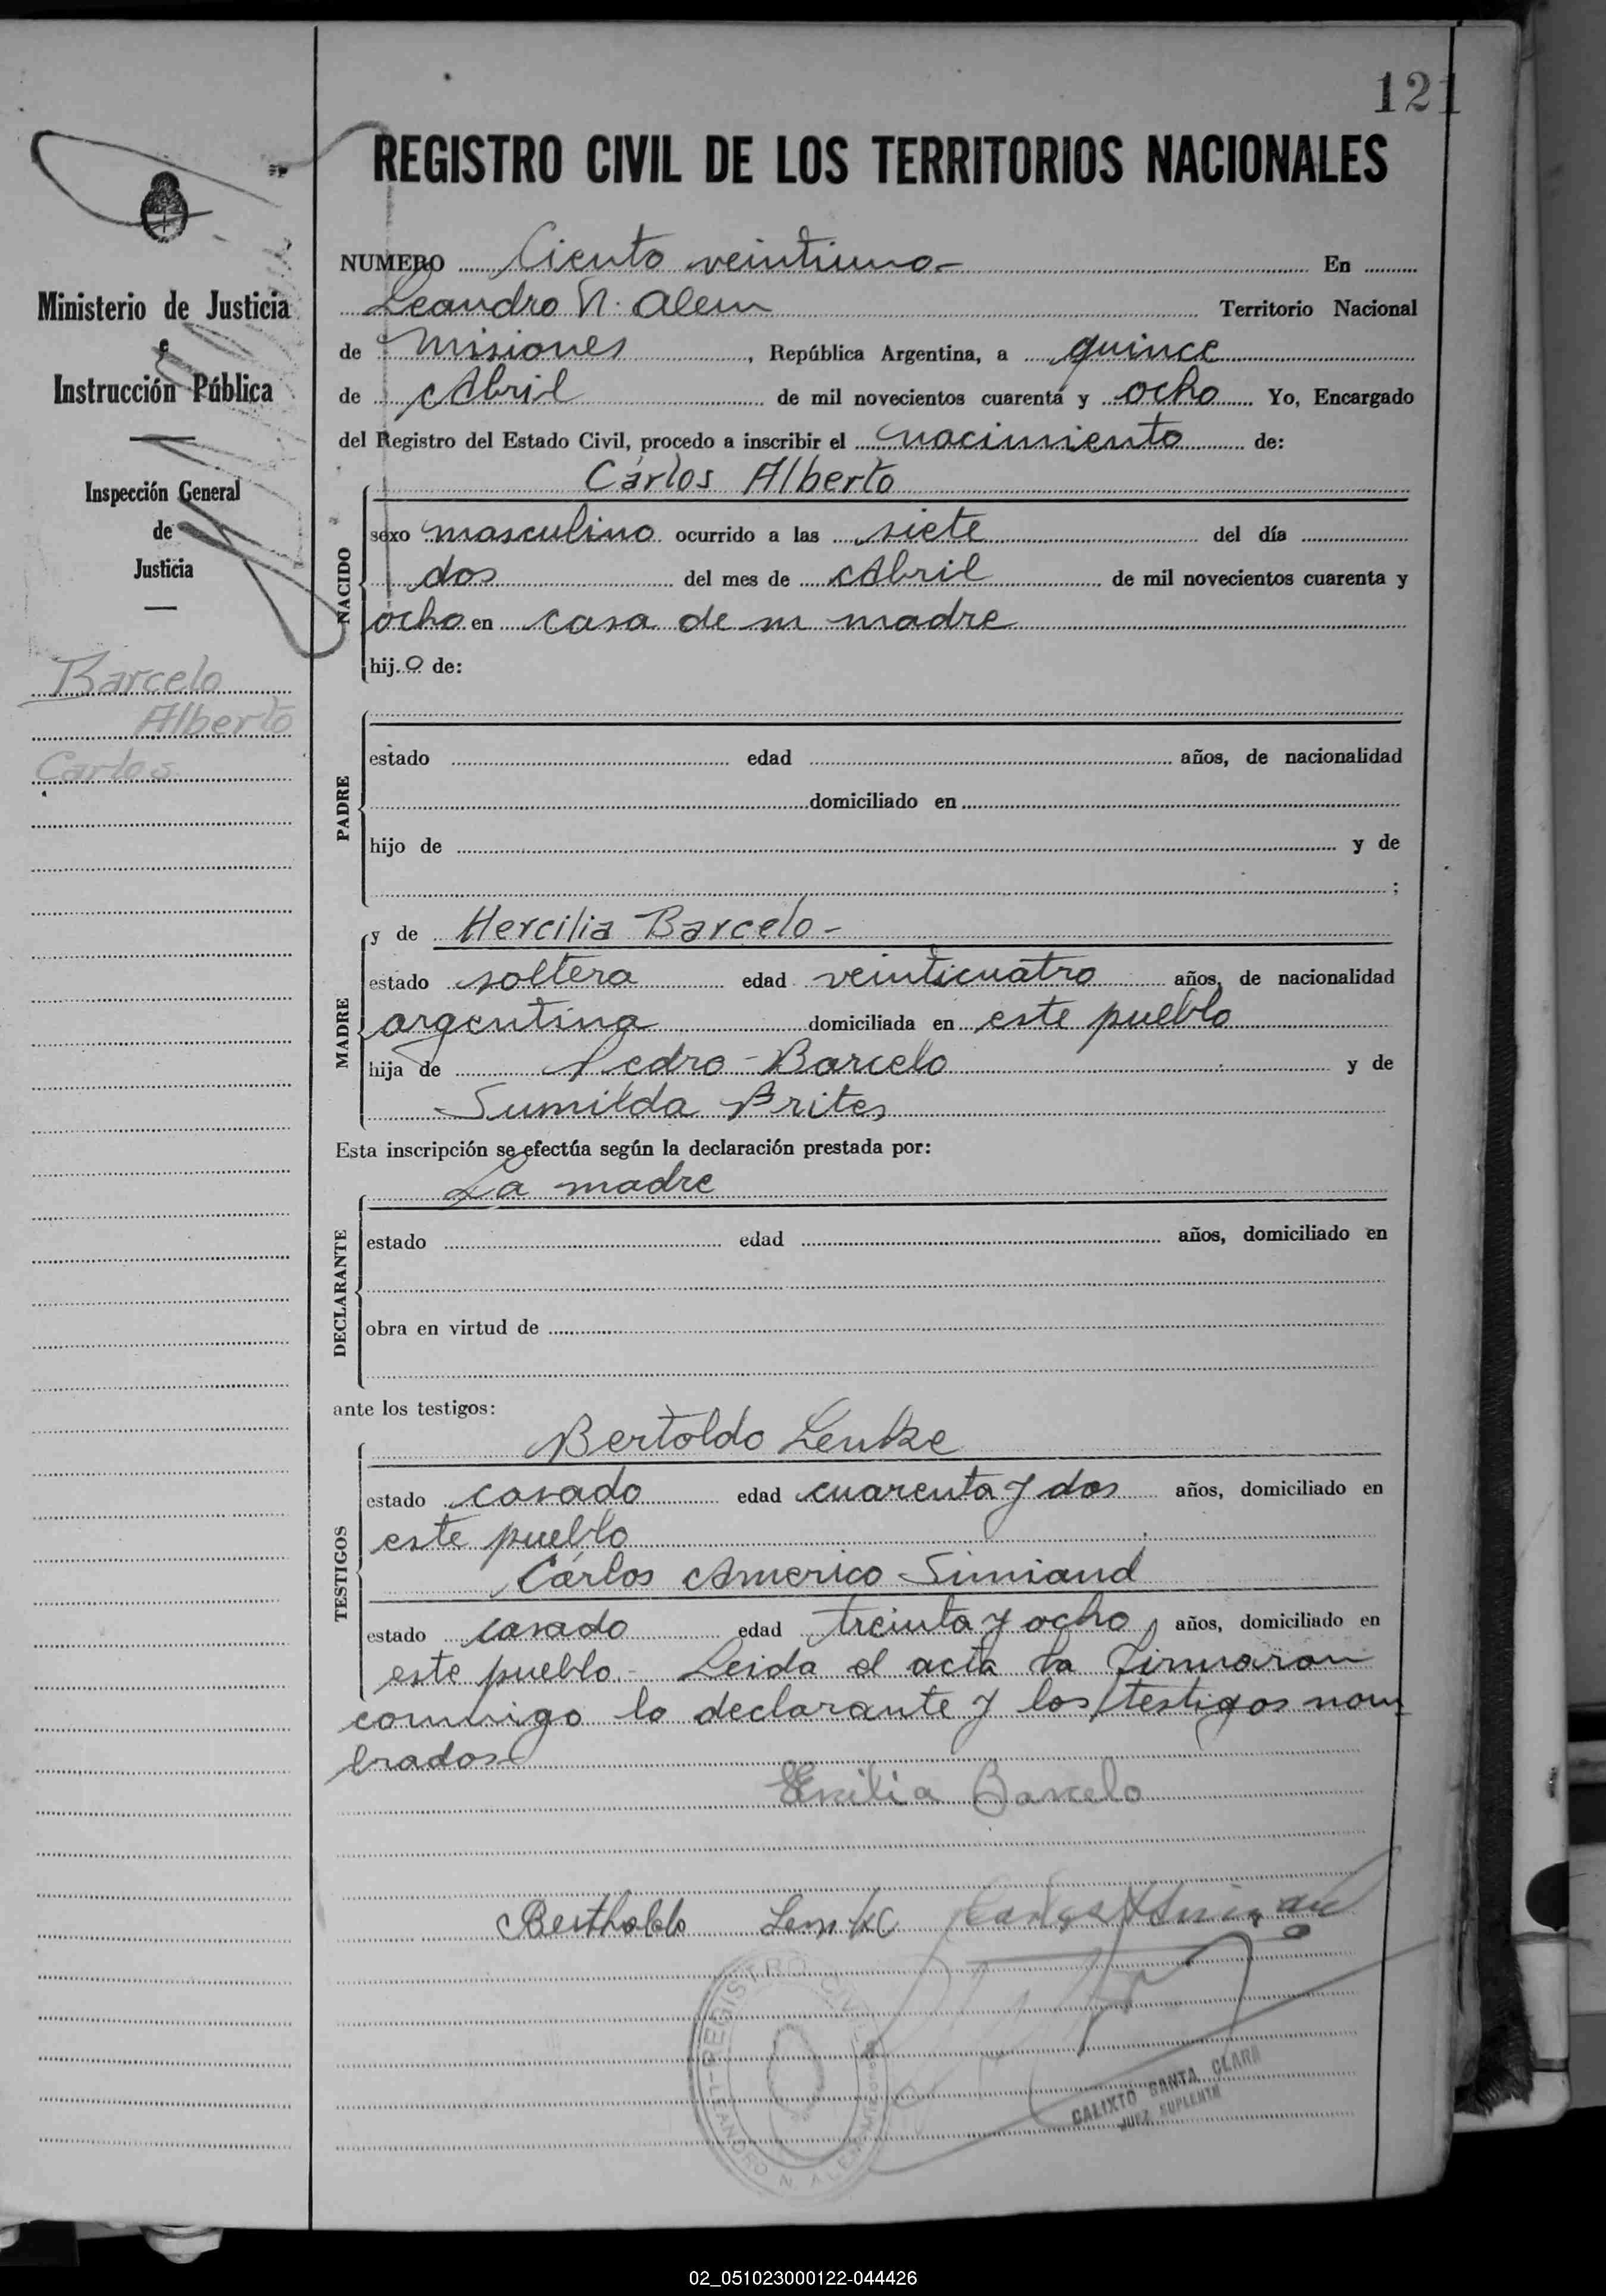 121
REGISTRO CIVIL DE LOS TERRITORIOS NACIONALES
Ministerio de Justicia
e
Instrucción Pública
Inspección General
de
Justicia
Barcelo
Alberto
Carlos
NUMERO Ciento veintiuno- En
Leandro N. Alem Territorio Nacional
de Misiones, República Argentina, a quince
de Abril de mil novecientos cuarenta y ocho Yo, Encargado
del Registro del Estado Civil, procedo a inscribir el nacimiento de:
NACIDO
Carlos Alberto
sexo masculino ocurrido a las siete del día
dos del mes de Abril de mil novecientos cuarenta y
ocho en casa de su madre
hij.o de:
PADRE
estado edad años, de nacionalidad
domiciliado en
hijo de y de
;
MADRE
y de Hercilia Barcelo-
estado soltera edad veinticuatro años, de nacionalidad
argentina domiciliada en este pueblo
hija de Pedro Barcelo y de
Sumilda Brites
Esta inscripción se efectúa según la declaración prestada por:
DECLARANTE
La madre
estado edad años, domiciliado en
obra en virtud de
ante los testigos:
TESTIGOS
Bertoldo Lemke
estado casado edad cuarenta y dos años, domiciliado en
este pueblo
Carlos Americo Simiand
estado casado edad treinta y ocho, años, domiciliado en
este pueblo- Leida el acta la firmaron
conmigo la declarante y los testigos nom
brados-
Ercilia Barcelo
Berthaldo Lemke
REGISTRO CIVIL
LEANDRO N. ALEM
CALIXTO SANTA CLARA
JUEZ SUPLENTE
02_051023000122-044426